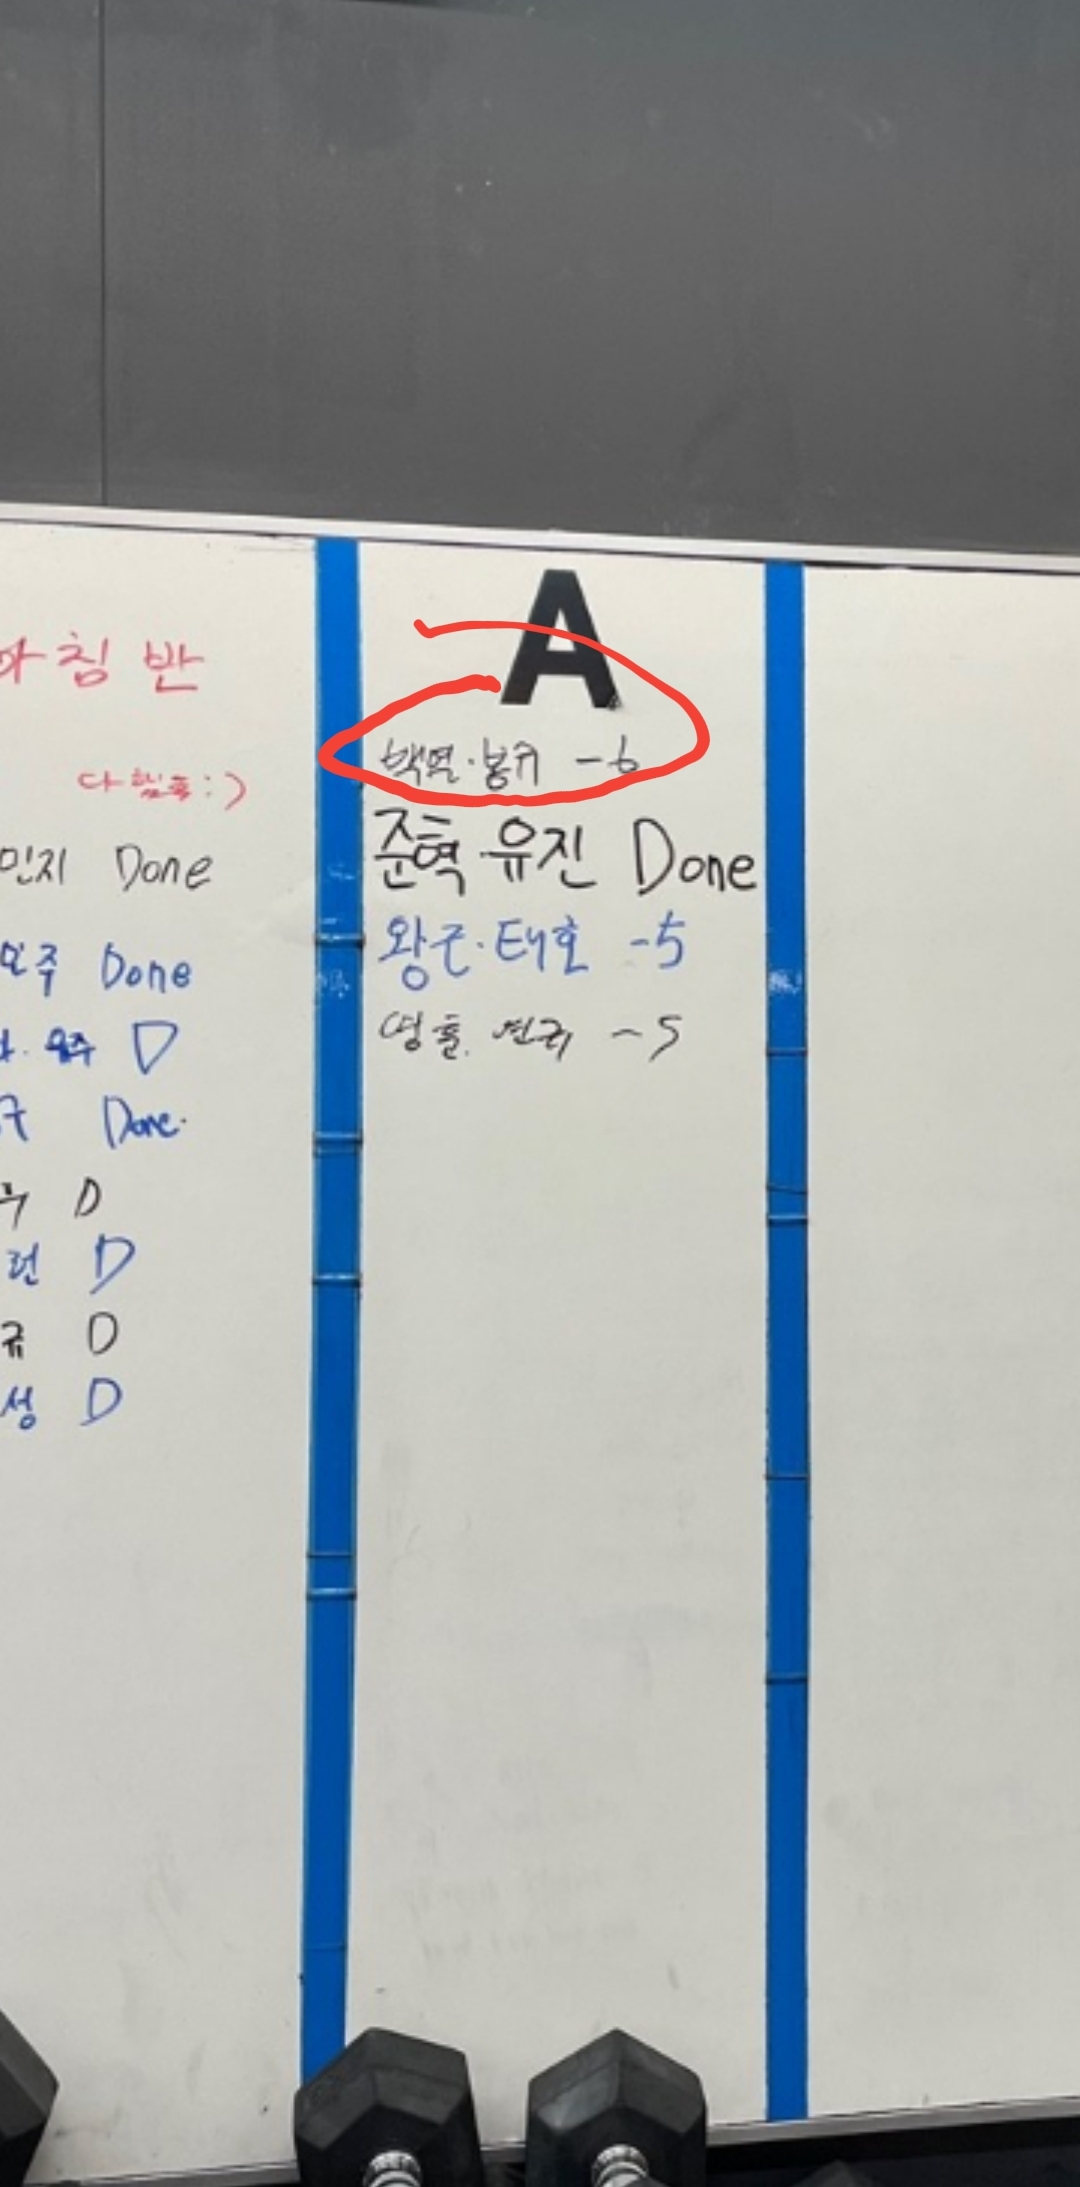 아침반
다힘듦:)
민지 Done
Done
D
Done.
D
런 D
규 D
성 D
A
백열·봉규 -6
준혁 유진 Done
왕근·태호 -5
-5